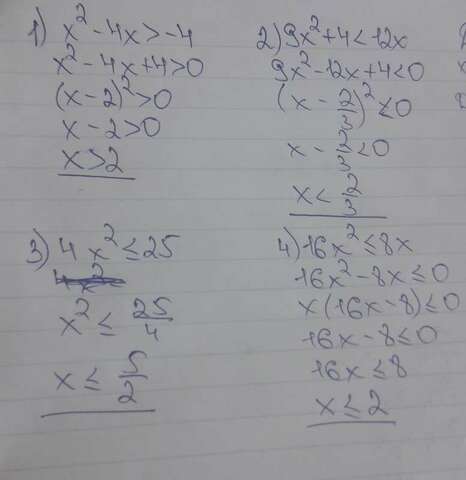 1) x² - 4x > -4
x² - 4x + 4 > 0
(x - 2)² > 0
x - 2 > 0
x > 2
2) 9x² + 4 < 12x
9x² - 12x + 4 < 0
(x - 2/3)² < 0
x - 2/3 < 0
x < 2/3
3) 4x² ≤ 25
x² ≤ 25/4
x ≤ 5/2
4) 16x² ≤ 8x
16x² - 8x ≤ 0
x(16x - 8) ≤ 0
16x - 8 ≤ 0
16x ≤ 8
x ≤ 2